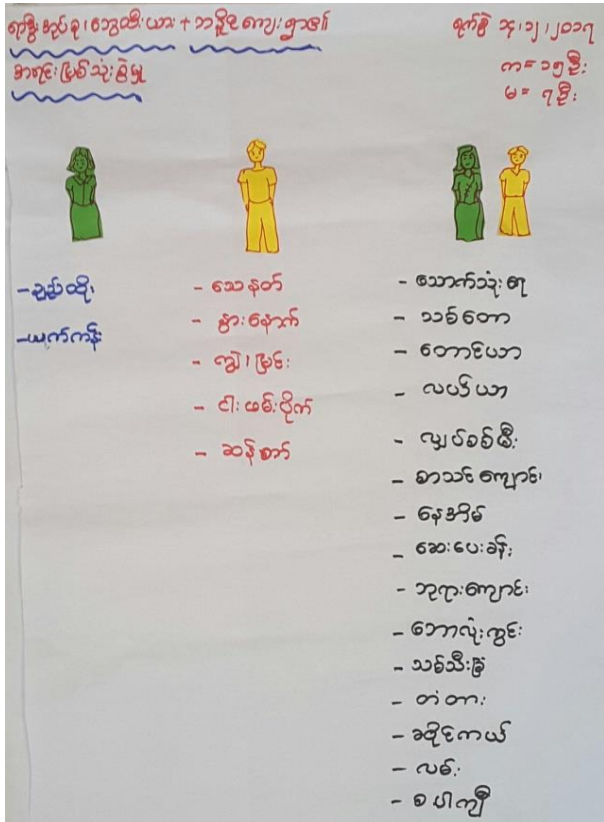 ရက်စွဲ ၁၄၊၁၂၊၂၀၁၇
အရင်းမြစ်သုံးစွဲမှု
က = ၁၅ဦး
မ = ၇ဦး
-ချည်ထိုး
-ယက်ကန်း
- သေနတ်
- နွားနောက်
- ကျွဲ၊မြင်း
- ငါးဖမ်းပိုက်
- ဆန်စက်
- သောက်သုံးရေ
- သစ်တော
- တောင်ယာ
- လယ်ယာ
- လျှပ်စစ်မီး
- စာသင်ကျောင်း
- နေအိမ်
- ဆေးပေးခန်း
- ဘုရားကျောင်း
- ဘောလုံးကွင်း
- သစ်သီးခြံ
- တံတား
- ဆိုင်ကယ်
- လမ်း
- စပါးကျီ